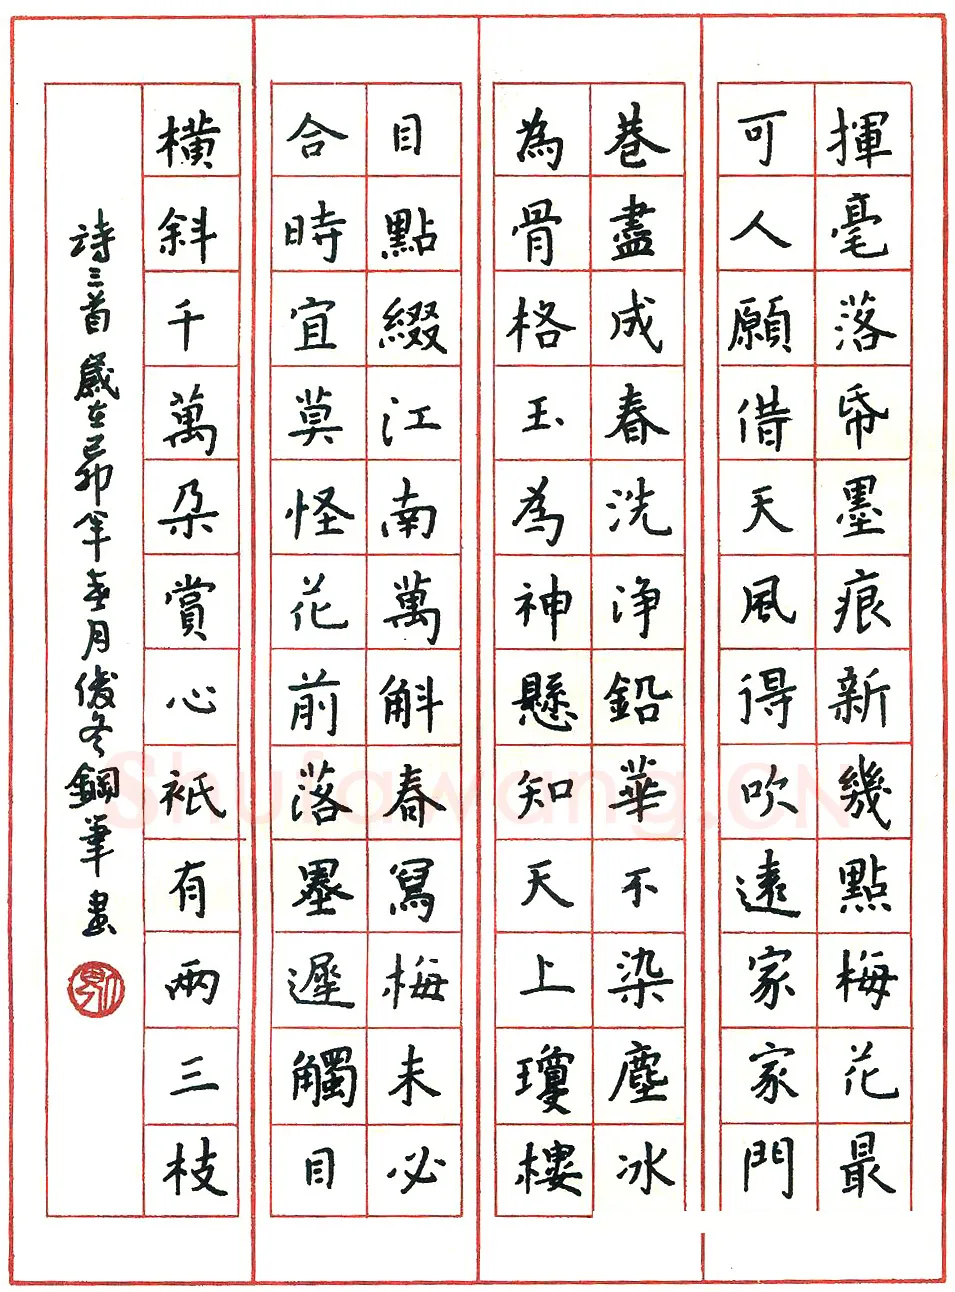 揮毫落帋墨痕新幾點梅花最
可人願借天風得吹遠家家門
巷盡成春洗浄鉛華不染塵冰
為骨格玉為神懸知天上瓊樓
目點綴江南萬斛春寫梅未必
合時宜莫怪花前落墨遲觸目
橫斜千萬朵賞心衹有兩三枝
詩三首 歲在己卯年春月俊冬鋼筆書
Shufawang.CN